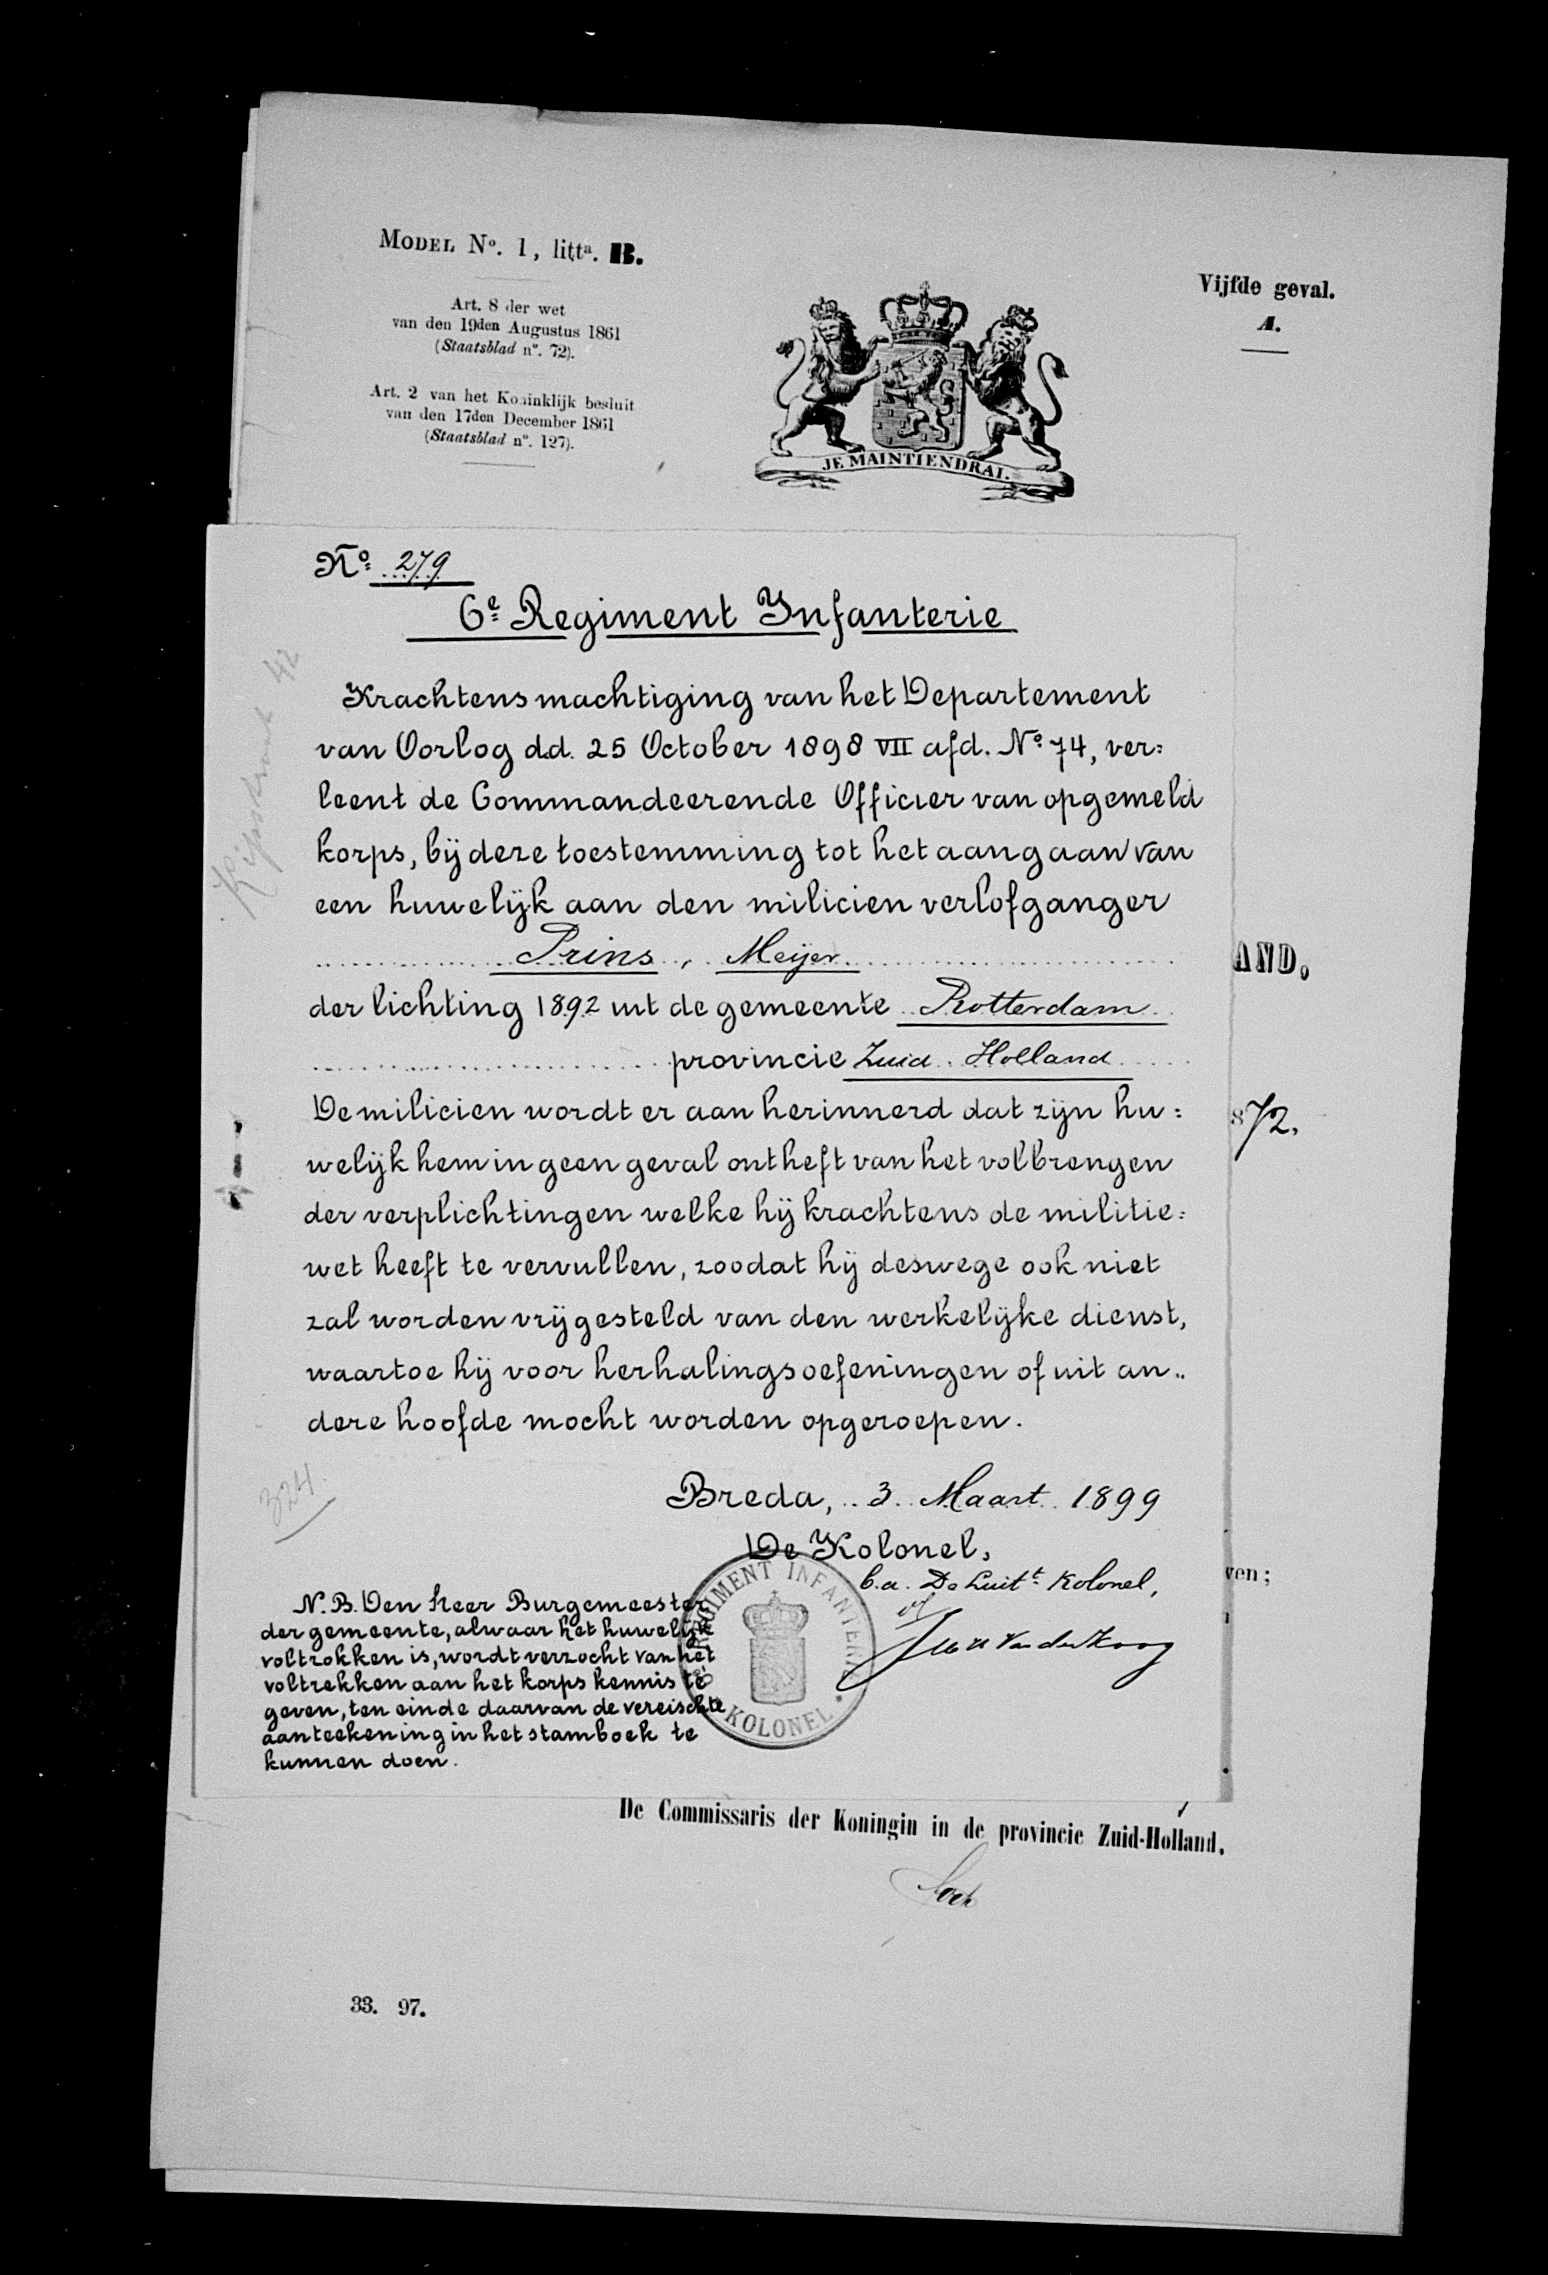 MODEL No. 1, litta. B.
Art. 8 der wet
van den 19den Augustus 1861
(Staatsblad no. 72).
Art. 2 van het Koninklijk besluit
van den 17den December 1861
(Staatsblad no. 127).
JE MAINTIENDRAI.
Vijfde geval.
A.
No. 279
6e Regiment Infanterie
42
Krachtens machtiging van het Departement
van Oorlog dd. 25 October 1898 VII afd. No. 74, ver=
leent de Commandeerende Officier van opgemeld
korps, bij deze toestemming tot het aangaan van
een huwelijk aan den milicien verlofganger
Prins, Meijer
AND,
der lichting 1892 uit de gemeente Rotterdam
provincie Zuid Holland
De milicien wordt er aan herinnerd dat zijn hu=
872.
welijk hem in geen geval ontheft van het volbrengen
der verplichtingen welke hij krachtens de militie=
wet heeft te vervullen, zoodat hij deswege ook niet
zal worden vrijgesteld van den werkelijke dienst,
waartoe hij voor herhalingsoefeningen of uit an..
dere hoofde mocht worden opgeroepen.
324
Breda, 3 Maart 1899
De Kolonel,
b.a. De Luitt. Kolonel,
ven;
van der
N.B. Den Heer Burgemeester
der gemeente, alwaar het huwelijk
voltrokken is, wordt verzocht van het
voltrekken aan het korps kennis te
geven, ten einde daarvan de vereischte
aanteekening in het stamboek te
kunnen doen.
6e REGIMENT INFANTERIE
KOLONEL
De Commissaris der Koningin in de provincie Zuid-Holland,
33. 97.